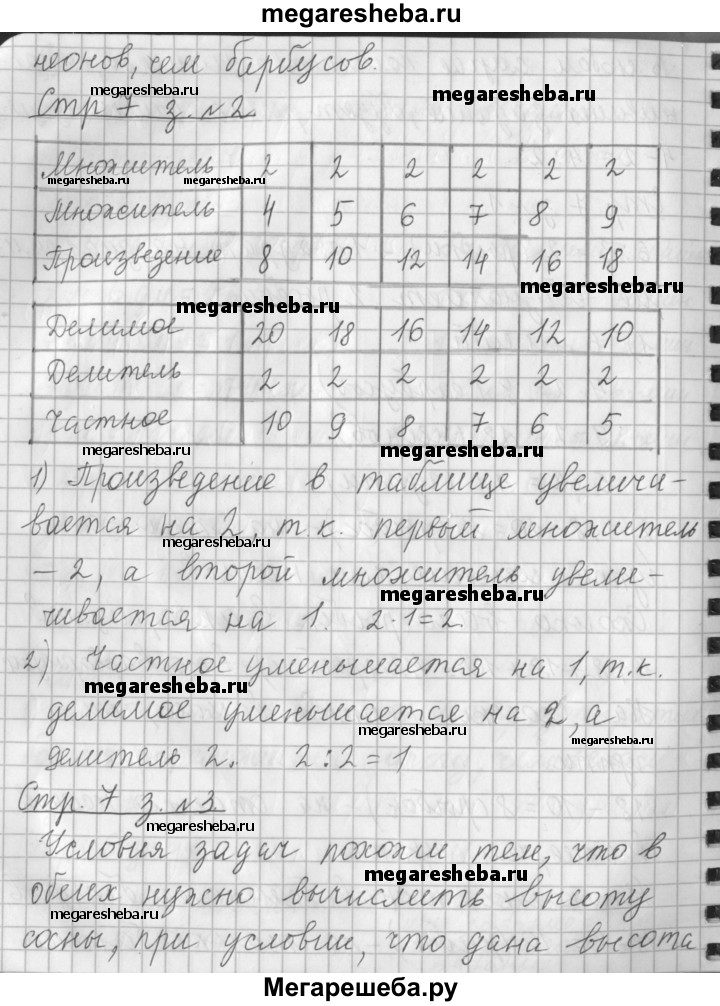 megaresheba.ru
неонов, чем барбусов.
megaresheba.ru megaresheba.ru
Стр 7 з. №2.
Множитель 2 2 2 2 2 2
megaresheba.ru megaresheba.ru
Множитель 4 5 6 7 8 9
Произведение 8 10 12 14 16 18
megaresheba.ru
megaresheba.ru
Делимое 20 18 16 14 12 10
Делитель 2 2 2 2 2 2
Частное 10 9 8 7 6 5
megaresheba.ru megaresheba.ru
1) Произведение в таблице увеличи-
вается на 2, т.к. первый множитель
megaresheba.ru
– 2, а второй множитель увели-
megaresheba.ru
чивается на 1. 2·1=2.
2) Частное уменьшается на 1, т.к.
megaresheba.ru
делимое уменьшается на 2, а
megaresheba.ru
megaresheba.ru
делитель 2. 2:2=1
Стр. 7 з. №3.
megaresheba.ru
Условия задач похожи тем, что в
megaresheba.ru
обеих нужно вычислить высоту
megaresheba.ru
сосны, при условии, что дана высота
Мегарешеба.ру